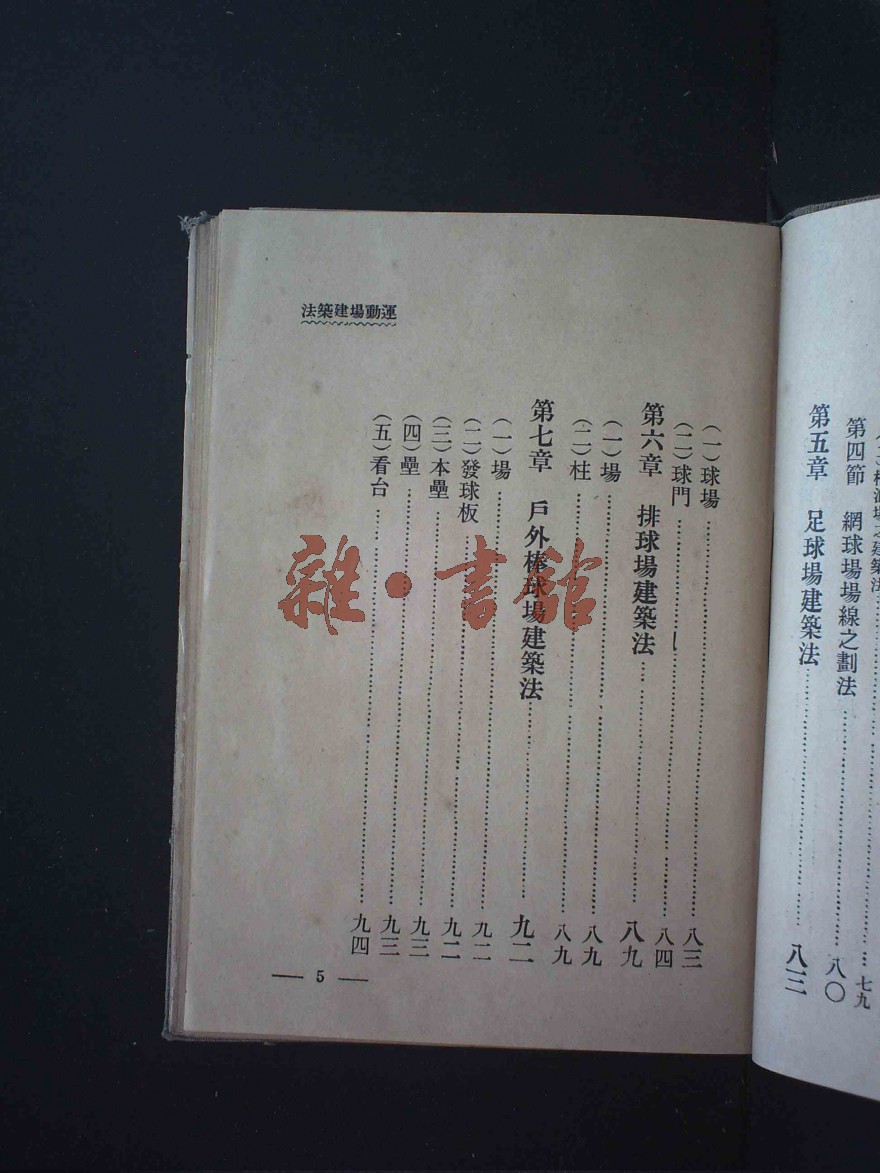 之建築法……七九
第四節 網球場場線之劃法……八〇
第五章 足球場建築法……八三
運動場建築法
(一)球場……八三
(二)球門……八四
第六章 排球場建築法……八九
(一)場……八九
(二)柱……八九
第七章 戶外棒球場建築法……九二
(一)場……九二
(二)發球板……九二
(三)本壘……九三
(四)壘……九三
(五)看台……九四
— 5 —
雜·書館